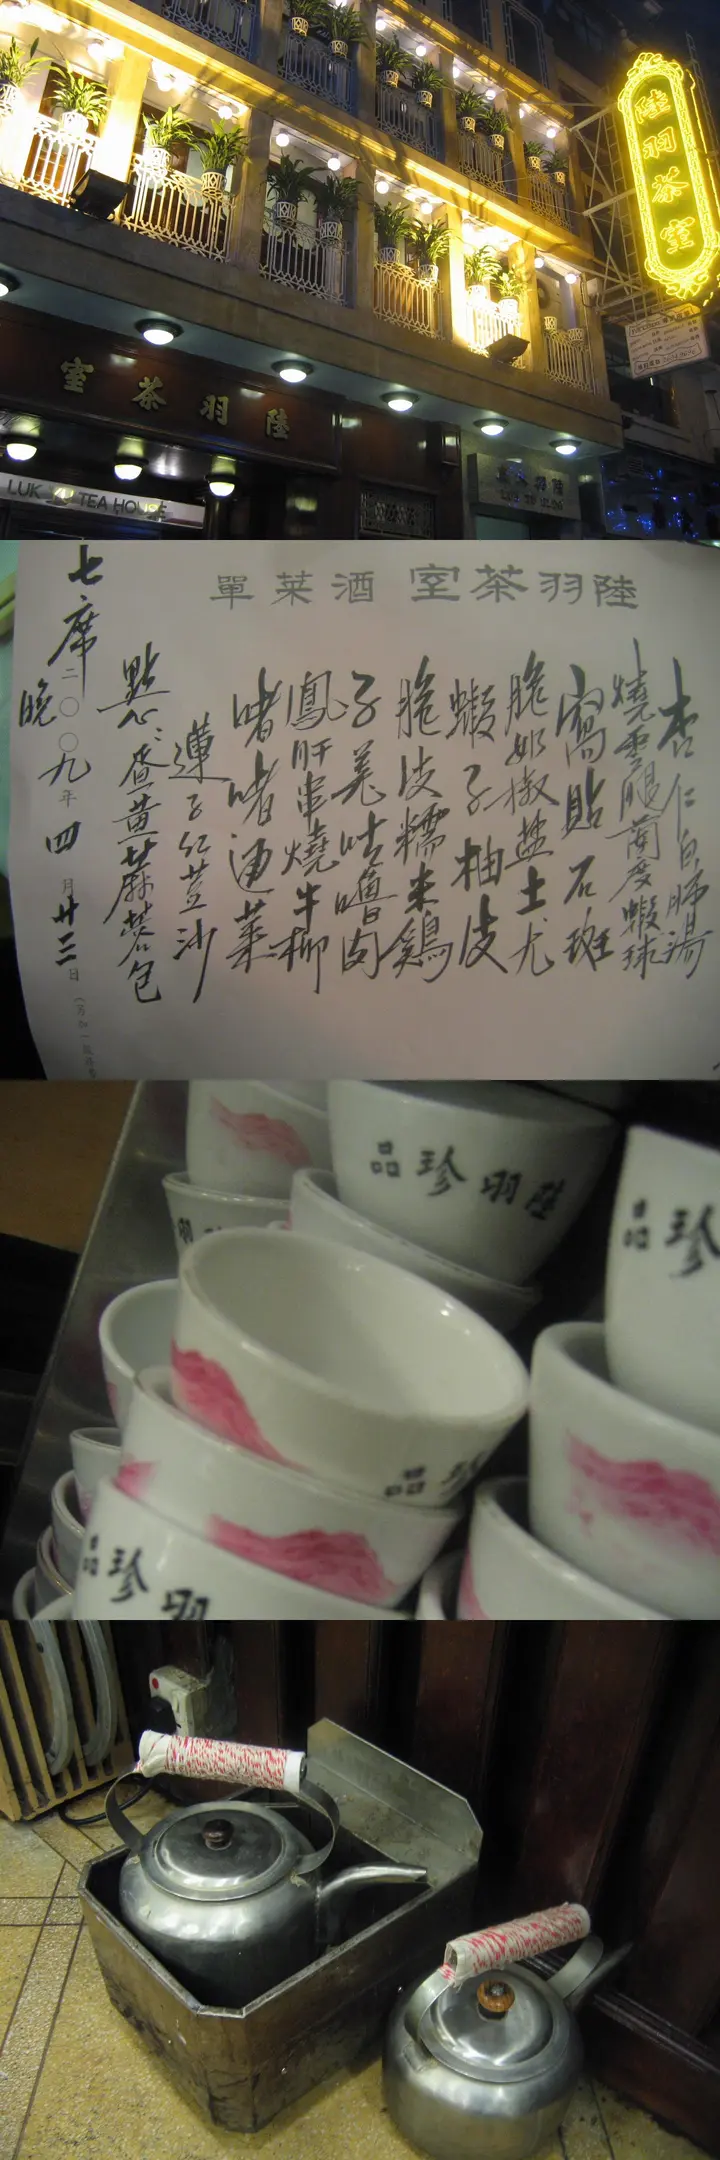 陸羽茶室
陸羽茶室
LUK YU TEA HOUSE
陸羽茶室酒菜單
杏仁白肺湯
燒雲腿蘭度蝦球
窩貼石斑
脆奶椒盐土尤
蝦子柚皮
脆皮糯米鷄
子羗咕嚕肉
鳳肝串燒牛柳
啫啫通菜
蓮子红荳沙
點心:蛋黄蔴蓉包
七席
晚
二〇〇九年四月廿三日
陸羽珍品
珍品
羽
珍品
羽珍品